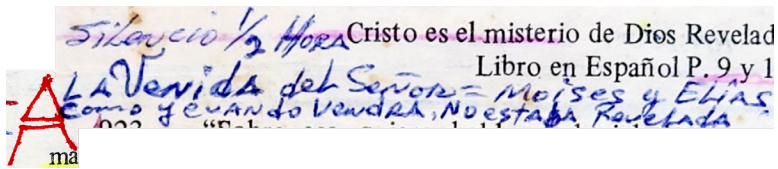 Silencio 1/2 HORA Cristo es el misterio de Dios Revelad
Libro en Español P. 9 y 1
LA Venida del Señor = Moises y Elias
A
Como y cuando vendra, No estaba Revelada
ma